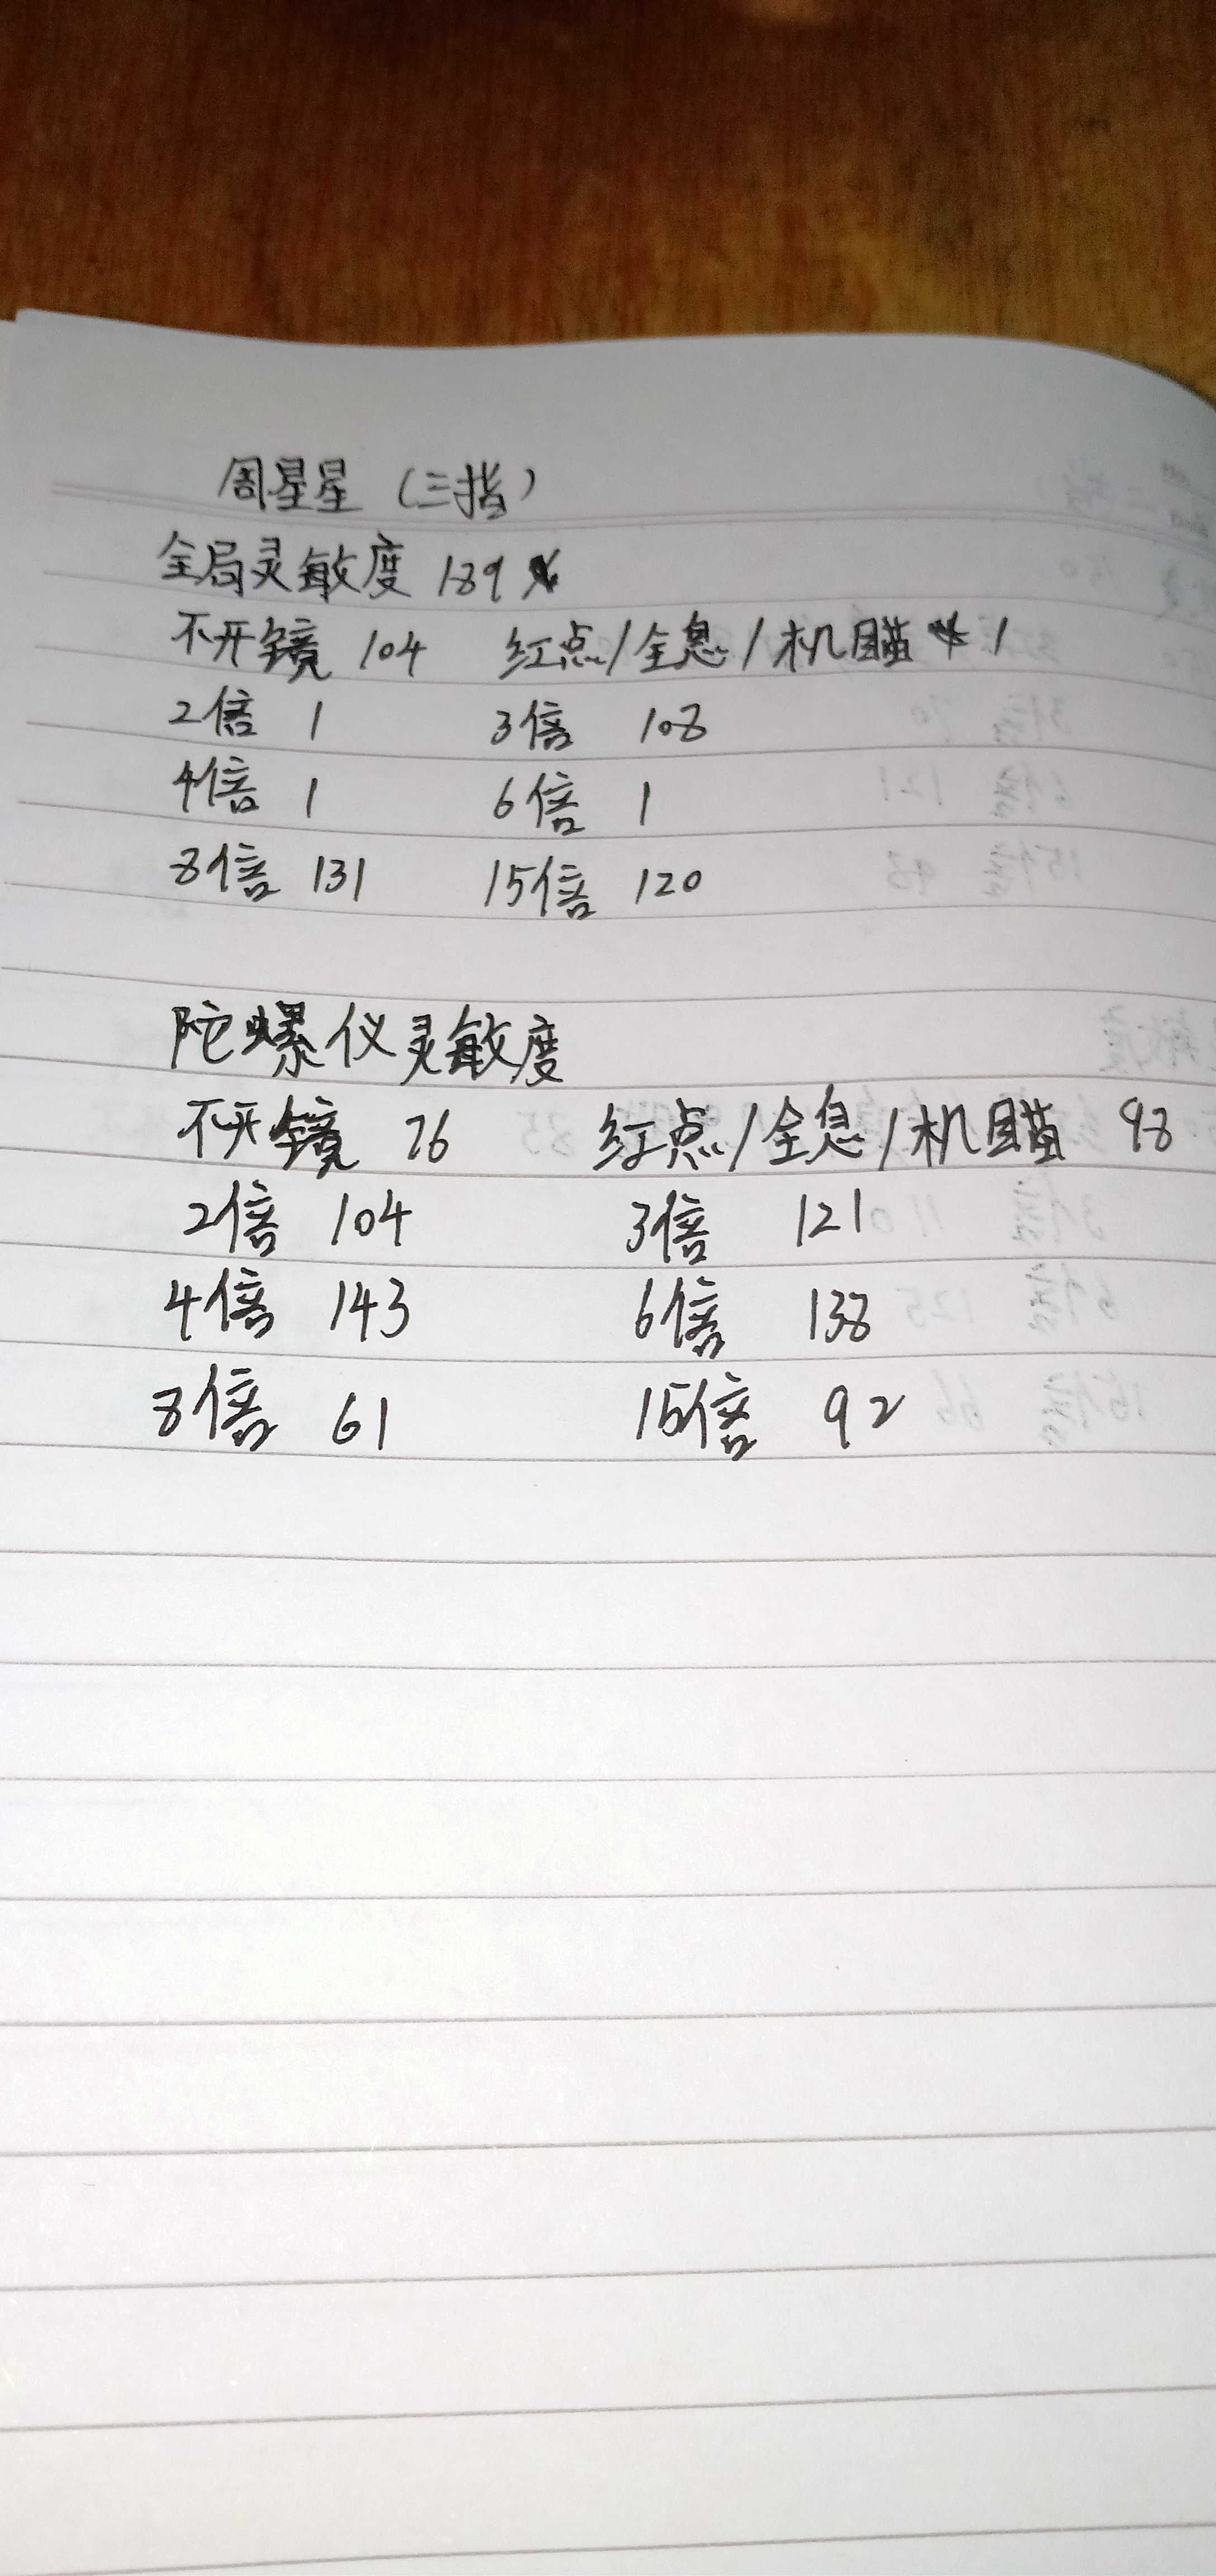 周星星（三指）
全局灵敏度 189
不开镜 104 红点/全息/机瞄 1
2倍 1 3倍 108
4倍 1 6倍 1
8倍 131 15倍 120
陀螺仪灵敏度
不开镜 76 红点/全息/机瞄 98
2倍 104 3倍 121
4倍 143 6倍 138
8倍 61 15倍 92